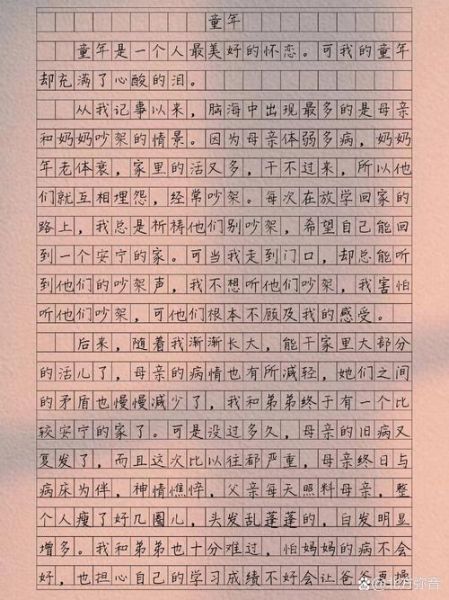 童年
童年是一个人最美好的怀恋。可我的童年
却充满了心酸的泪。
从我记事以来，脑海中出现最多的是母亲
和奶奶吵架的情景。因为母亲体弱多病，奶奶
年老体衰，家里的活又多，干不过来，所以他
们就互相埋怨，经常吵架。每次在放学回家的
路上，我总是祈祷他们别吵架，希望自己能回
到一个安宁的家。可当我走到门口，却总能听
到他们的吵架声，我不想听他们吵架，我害怕
听他们吵架，可他们根本不顾及我的感受。
后来，随着我渐渐长大，能干家里大部分
的活儿了，母亲的病情也有所减轻，她们之间
的矛盾也慢慢减少了，我和弟弟终于有一个比
较安宁的家了。可是没过多久，母亲的旧病又
复发了，而且这次比以往都严重，母亲终日与
病床为伴，神情憔悴，父亲每天照料母亲，整
个人瘦了好几圈儿，头发乱蓬蓬的，白发明显
增多。我和弟弟也十分难过，怕妈妈的病不会
好，也担心自己的学习成绩不好会让爸爸再操